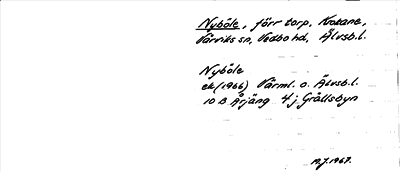 Nyböle, förr torp, Krokane,
Värviks sn, Vedbo hd, Älvsb.l.
Nyböle
ek (1966) Värml. o. Älvsb.l.
10 B Årjäng 4j Gröllsbyn
1967.